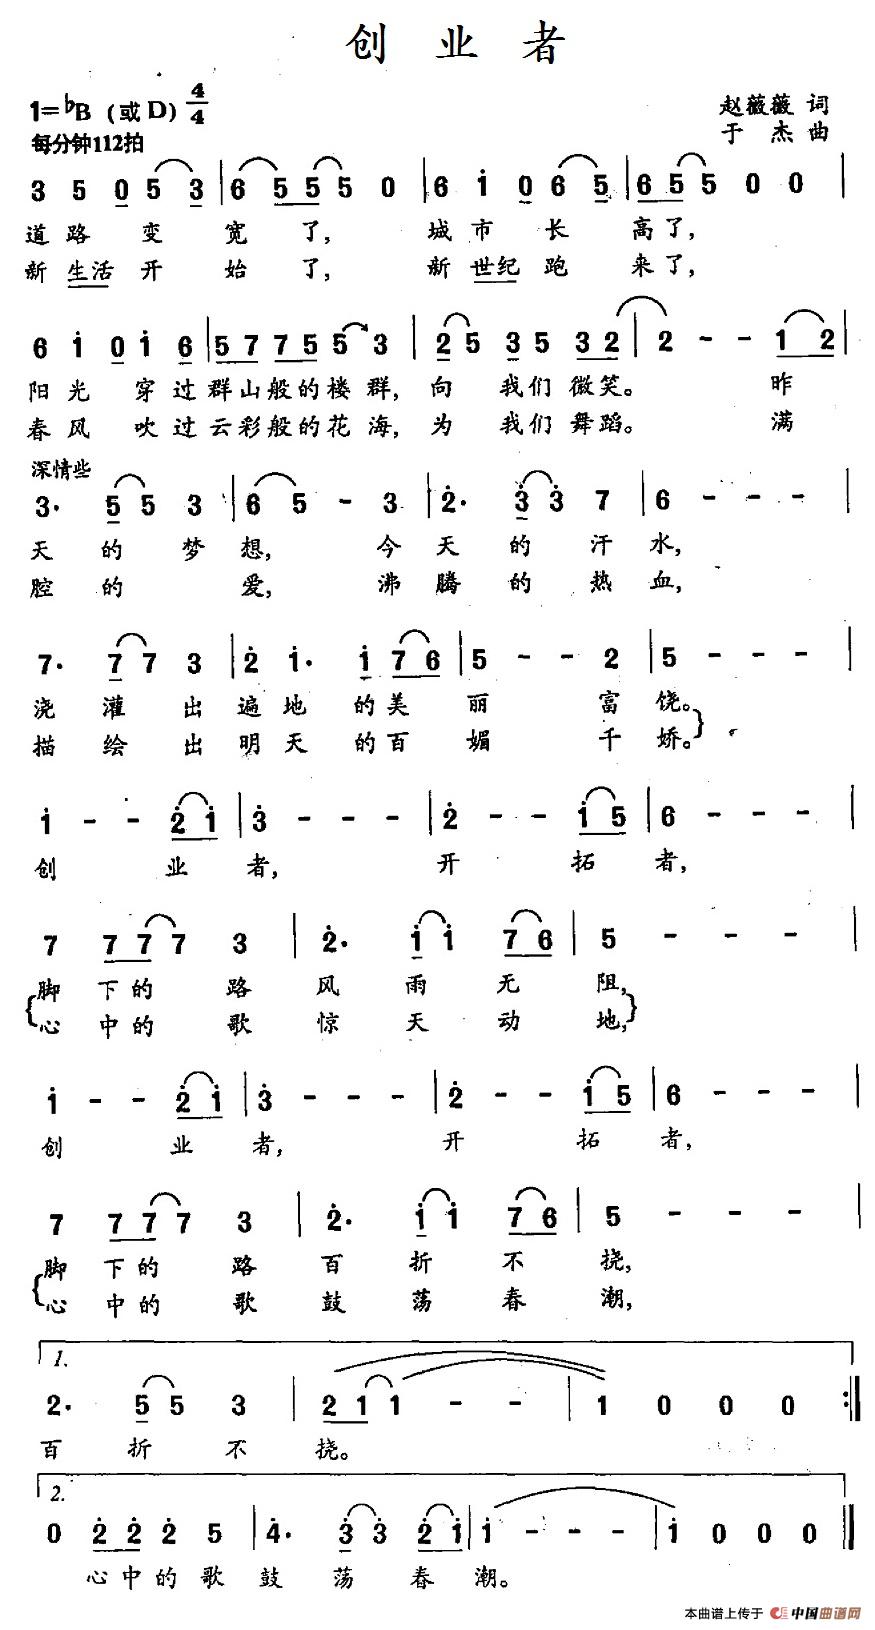 创 业 者
1=♭B (或 D) 4/4
赵薇薇 词
每分钟112拍
于 杰 曲
3 5 0 5 3 | 6 5 5 5 0 | 6 i 0 6 5 | 6 5 5 0 0 |
道 路 变 宽 了, 城 市 长 高 了,
新 生活 开 始 了, 新 世纪 跑 来 了,
6 i 0 i 6 | 5 7 7 5 5 3 | 2 5 3 5 3 2 | 2 - - 1 2 |
阳 光 穿 过 群 山 般 的 楼 群, 向 我 们 微 笑。 昨
春 风 吹 过 云 彩 般 的 花 海, 为 我 们 舞 蹈。 满
深情些
3· 5 5 3 | 6 5 - 3 | 2̇· 3̇ 3̇ 7 | 6 - - - |
天 的 梦 想, 今 天 的 汗 水,
腔 的 爱, 沸 腾 的 热 血,
7· 7 7 3 | 2̇ i· i 7 6 | 5 - - 2 | 5 - - - |
浇 灌 出 遍 地 的 美 丽 富 饶。
描 绘 出 明 天 的 百 媚 千 娇。}
i - - 2̇ i | 3̇ - - - | 2̇ - - i 5 | 6 - - - |
创 业 者, 开 拓 者,
7 7 7 7 3 | 2̇· i i 7 6 | 5 - - - |
脚 下 的 路 风 雨 无 阻,
{心 中 的 歌 惊 天 动 地,}
i - - 2̇ i | 3̇ - - - | 2̇ - - i 5 | 6 - - - |
创 业 者, 开 拓 者,
7 7 7 7 3 | 2̇· i i 7 6 | 5 - - - |
脚 下 的 路 百 折 不 挠,
{心 中 的 歌 鼓 荡 春 潮,
1.
2· 5 5 3 | 2 1 1 - - | 1 0 0 0 :‖
百 折 不 挠。
2.
0 2̇ 2̇ 2̇ 5 | 4̇· 3̇ 3̇ 2̇ i | i - - - | i 0 0 0 ‖
心 中 的 歌 鼓 荡 春 潮。
本曲谱上传于 中国曲谱网